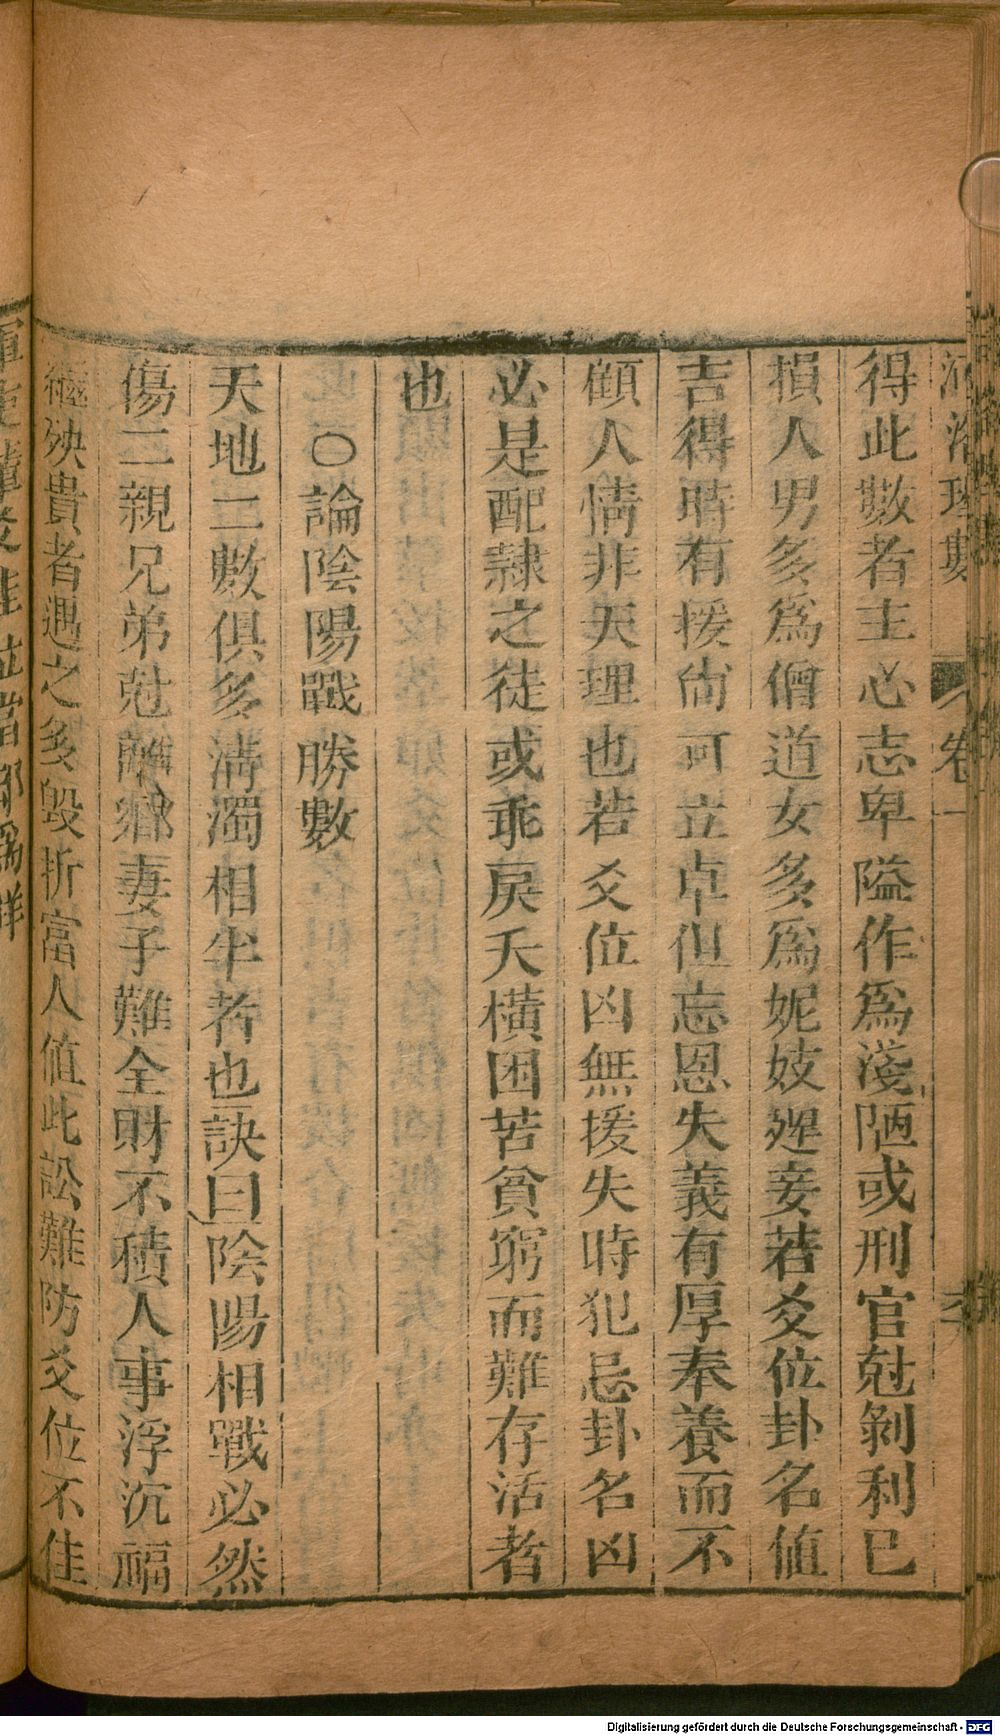 河洛理數 卷一
得此數者主必志卑隘作為淺陋或刑官尅剝利已
損人男多為僧道女多為妮妓婢妾若爻位卦名值
吉得時有援尚可立卓但忘恩失義有厚奉養而不
顧人情非天理也若爻位凶無援失時犯忌卦名凶
必是配隸之徒或乖戾夭橫困苦貧窮而難存活者
也
○論陰陽戰勝數
天地二數俱多淆濁相半者也訣曰陰陽相戰必然
傷二親兄弟尅離鄉妻子難全財不積人事浮沉福
極殃貴者遇之多毀折富人值此訟難防爻位不佳
Digitalisierung gefördert durch die Deutsche Forschungsgemeinschaft - DFG